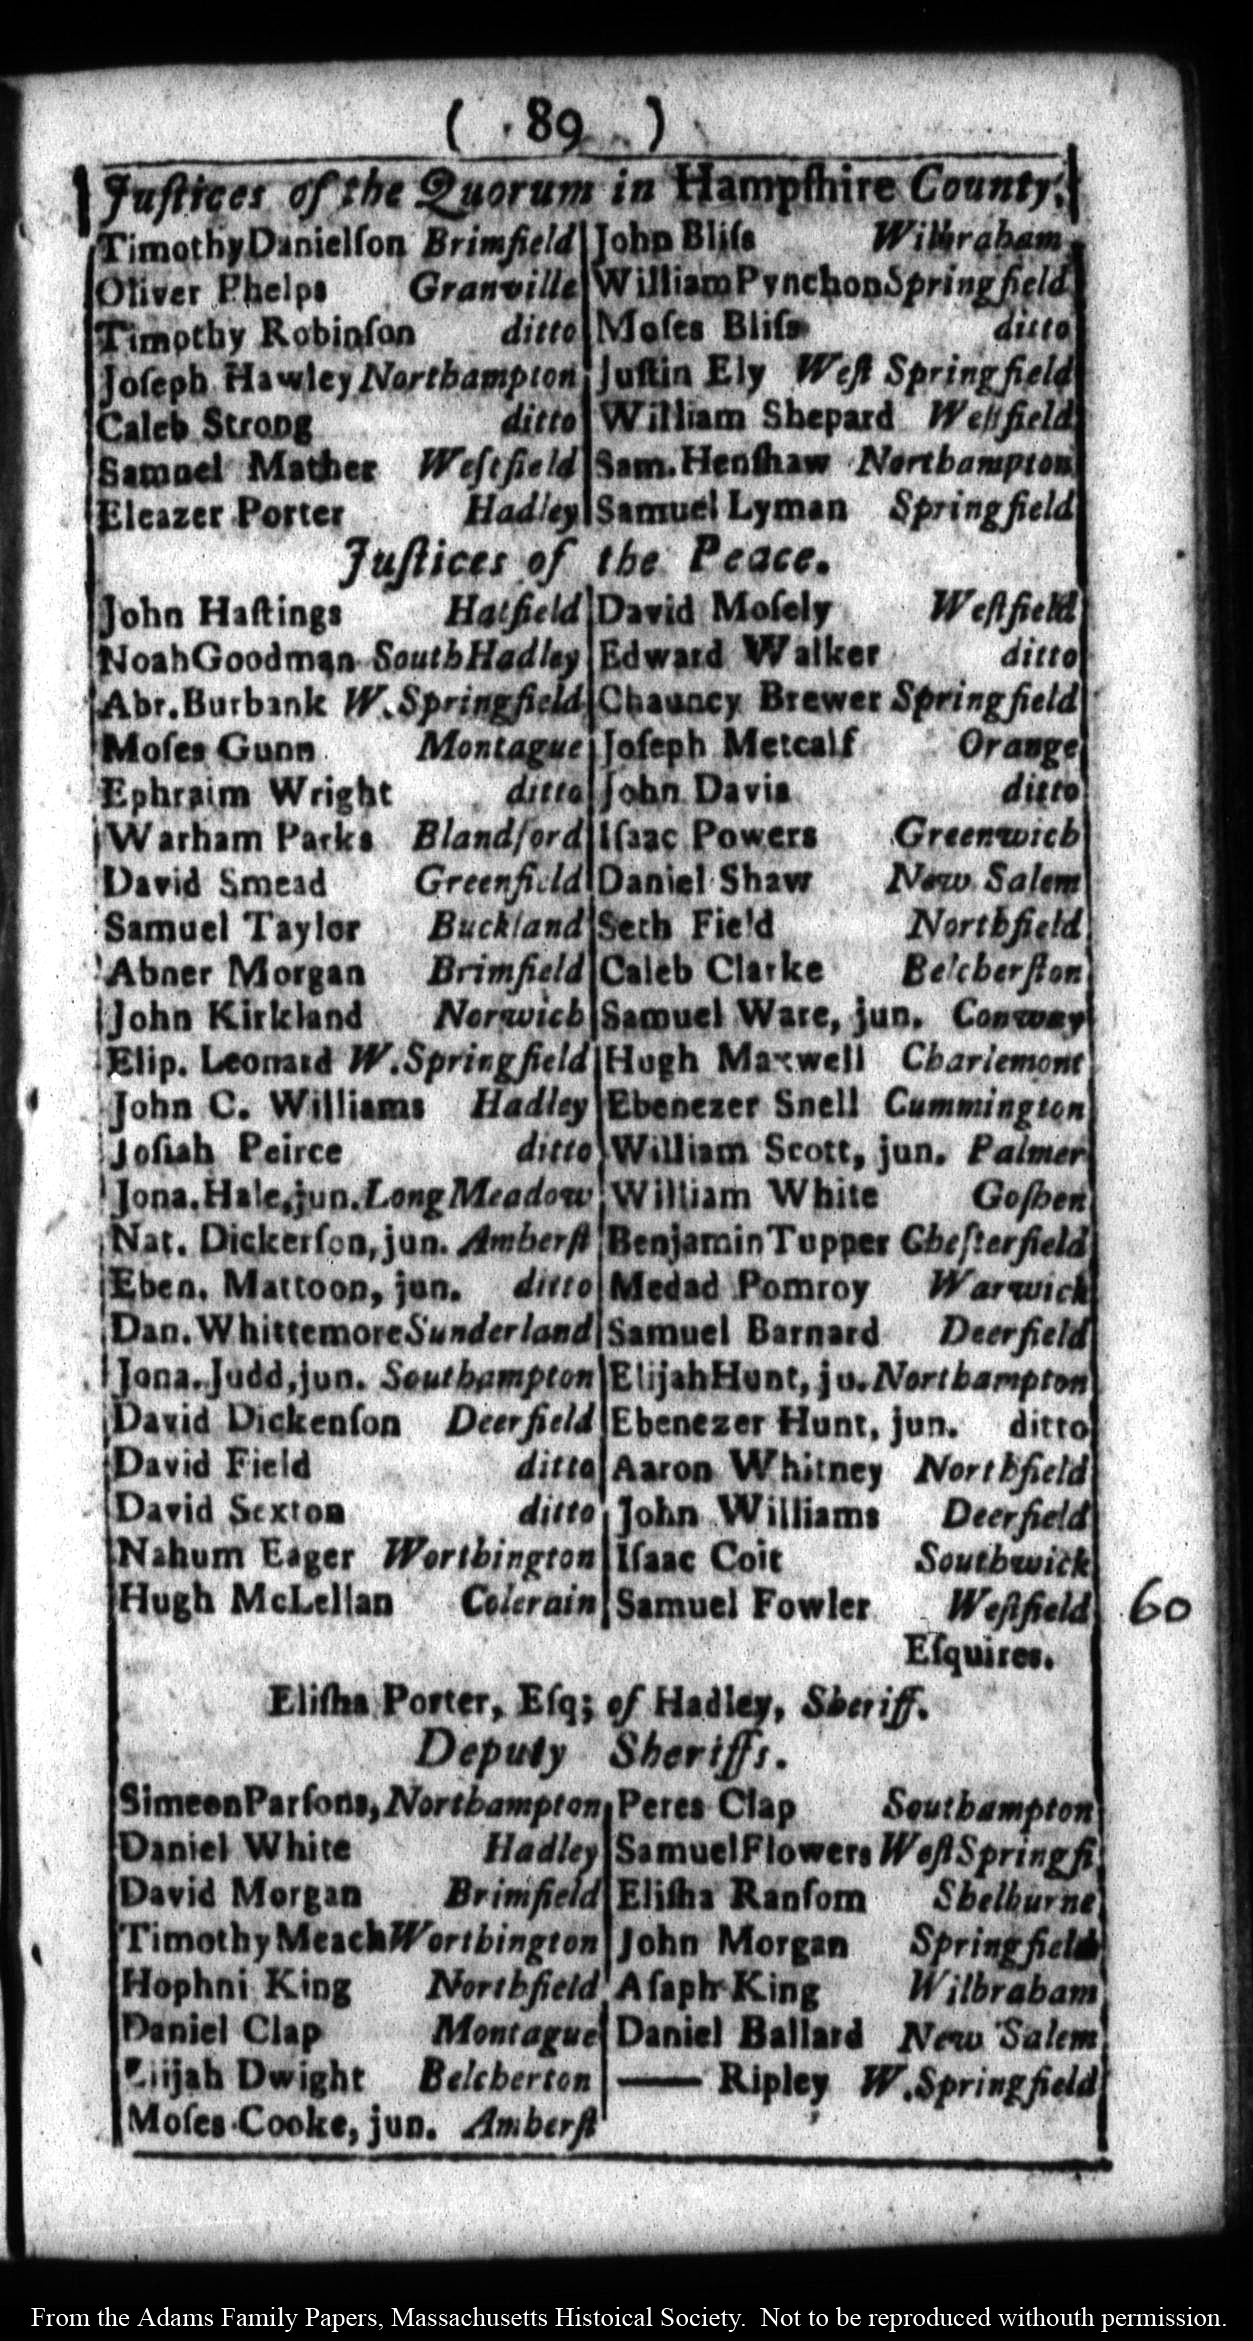 ( 89 )
Juſtices of the Quorum in Hampſhire County.
Timothy Danielſon Brimfield
Oliver Phelps Granville
Timothy Robinſon ditto
Joſeph Hawley Northampton
Caleb Strong ditto
Samuel Mather Weſtfield
Eleazer Porter Hadley
John Bliſs Wilbraham
William Pynchon Springfield
Moſes Bliſs ditto
Juſtin Ely Weſt Springfield
William Shepard Weſtfield
Sam. Henſhaw Northampton
Samuel Lyman Springfield
Juſtices of the Peace.
John Haſtings Hatfield
Noah Goodman South Hadley
Abr. Burbank W. Springfield
Moſes Gunn Montague
Ephraim Wright ditto
Warham Parks Blandford
David Smead Greenfield
Samuel Taylor Buckland
Abner Morgan Brimfield
John Kirkland Norwich
Elip. Leonard W. Springfield
John C. Williams Hadley
Joſiah Peirce ditto
Jona. Hale, jun. Long Meadow
Nat. Dickerſon, jun. Amherſt
Eben. Mattoon, jun. ditto
Dan. Whittemore Sunderland
Jona. Judd, jun. Southampton
David Dickenſon Deerfield
David Field ditto
David Sexton ditto
Nahum Eager Worthington
Hugh McLellan Colerain
David Moſely Weſtfield
Edward Walker ditto
Chauncy Brewer Springfield
Joſeph Metcalf Orange
John Davis ditto
Iſaac Powers Greenwich
Daniel Shaw New Salem
Seth Field Northfield
Caleb Clarke Belcherſton
Samuel Ware, jun. Conway
Hugh Maxwell Charlemont
Ebenezer Snell Cummington
William Scott, jun. Palmer
William White Goſhen
Benjamin Tupper Cheſterfield
Medad Pomroy Warwick
Samuel Barnard Deerfield
Elijah Hunt, ju. Northampton
Ebenezer Hunt, jun. ditto
Aaron Whitney Northfield
John Williams Deerfield
Iſaac Coit Southwick
Samuel Fowler Weſtfield
60
Eſquires.
Eliſha Porter, Eſq; of Hadley, Sheriff.
Deputy Sheriffs.
Simeon Parſons, Northampton
Daniel White Hadley
David Morgan Brimfield
Timothy Meach Worthington
Hophni King Northfield
Daniel Clap Montague
Elijah Dwight Belcherton
Moſes Cooke, jun. Amherſt
Peres Clap Southampton
Samuel Flowers Weſt Springfi
Eliſha Ranſom Shelburne
John Morgan Springfield
Aſaph King Wilbraham
Daniel Ballard New Salem
—— Ripley W. Springfield
From the Adams Family Papers, Massachusetts Histoical Society. Not to be reproduced withouth permission.